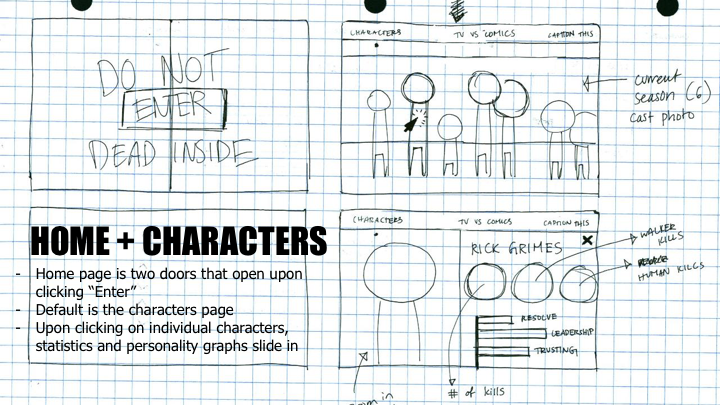 DO NOT
ENTER
DEAD INSIDE
CHARACTERS TV VS COMICS CAPTION THIS
current
season (6)
cast photo
HOME + CHARACTERS
- Home page is two doors that open upon
clicking “Enter”
- Default is the characters page
- Upon clicking on individual characters,
statistics and personality graphs slide in
CHARACTERS TV VS COMICS CAPTION THIS
RICK GRIMES
WALKER
KILLS
HUMAN KILLS
RESOLVE
LEADERSHIP
TRUSTING
# of kills
in